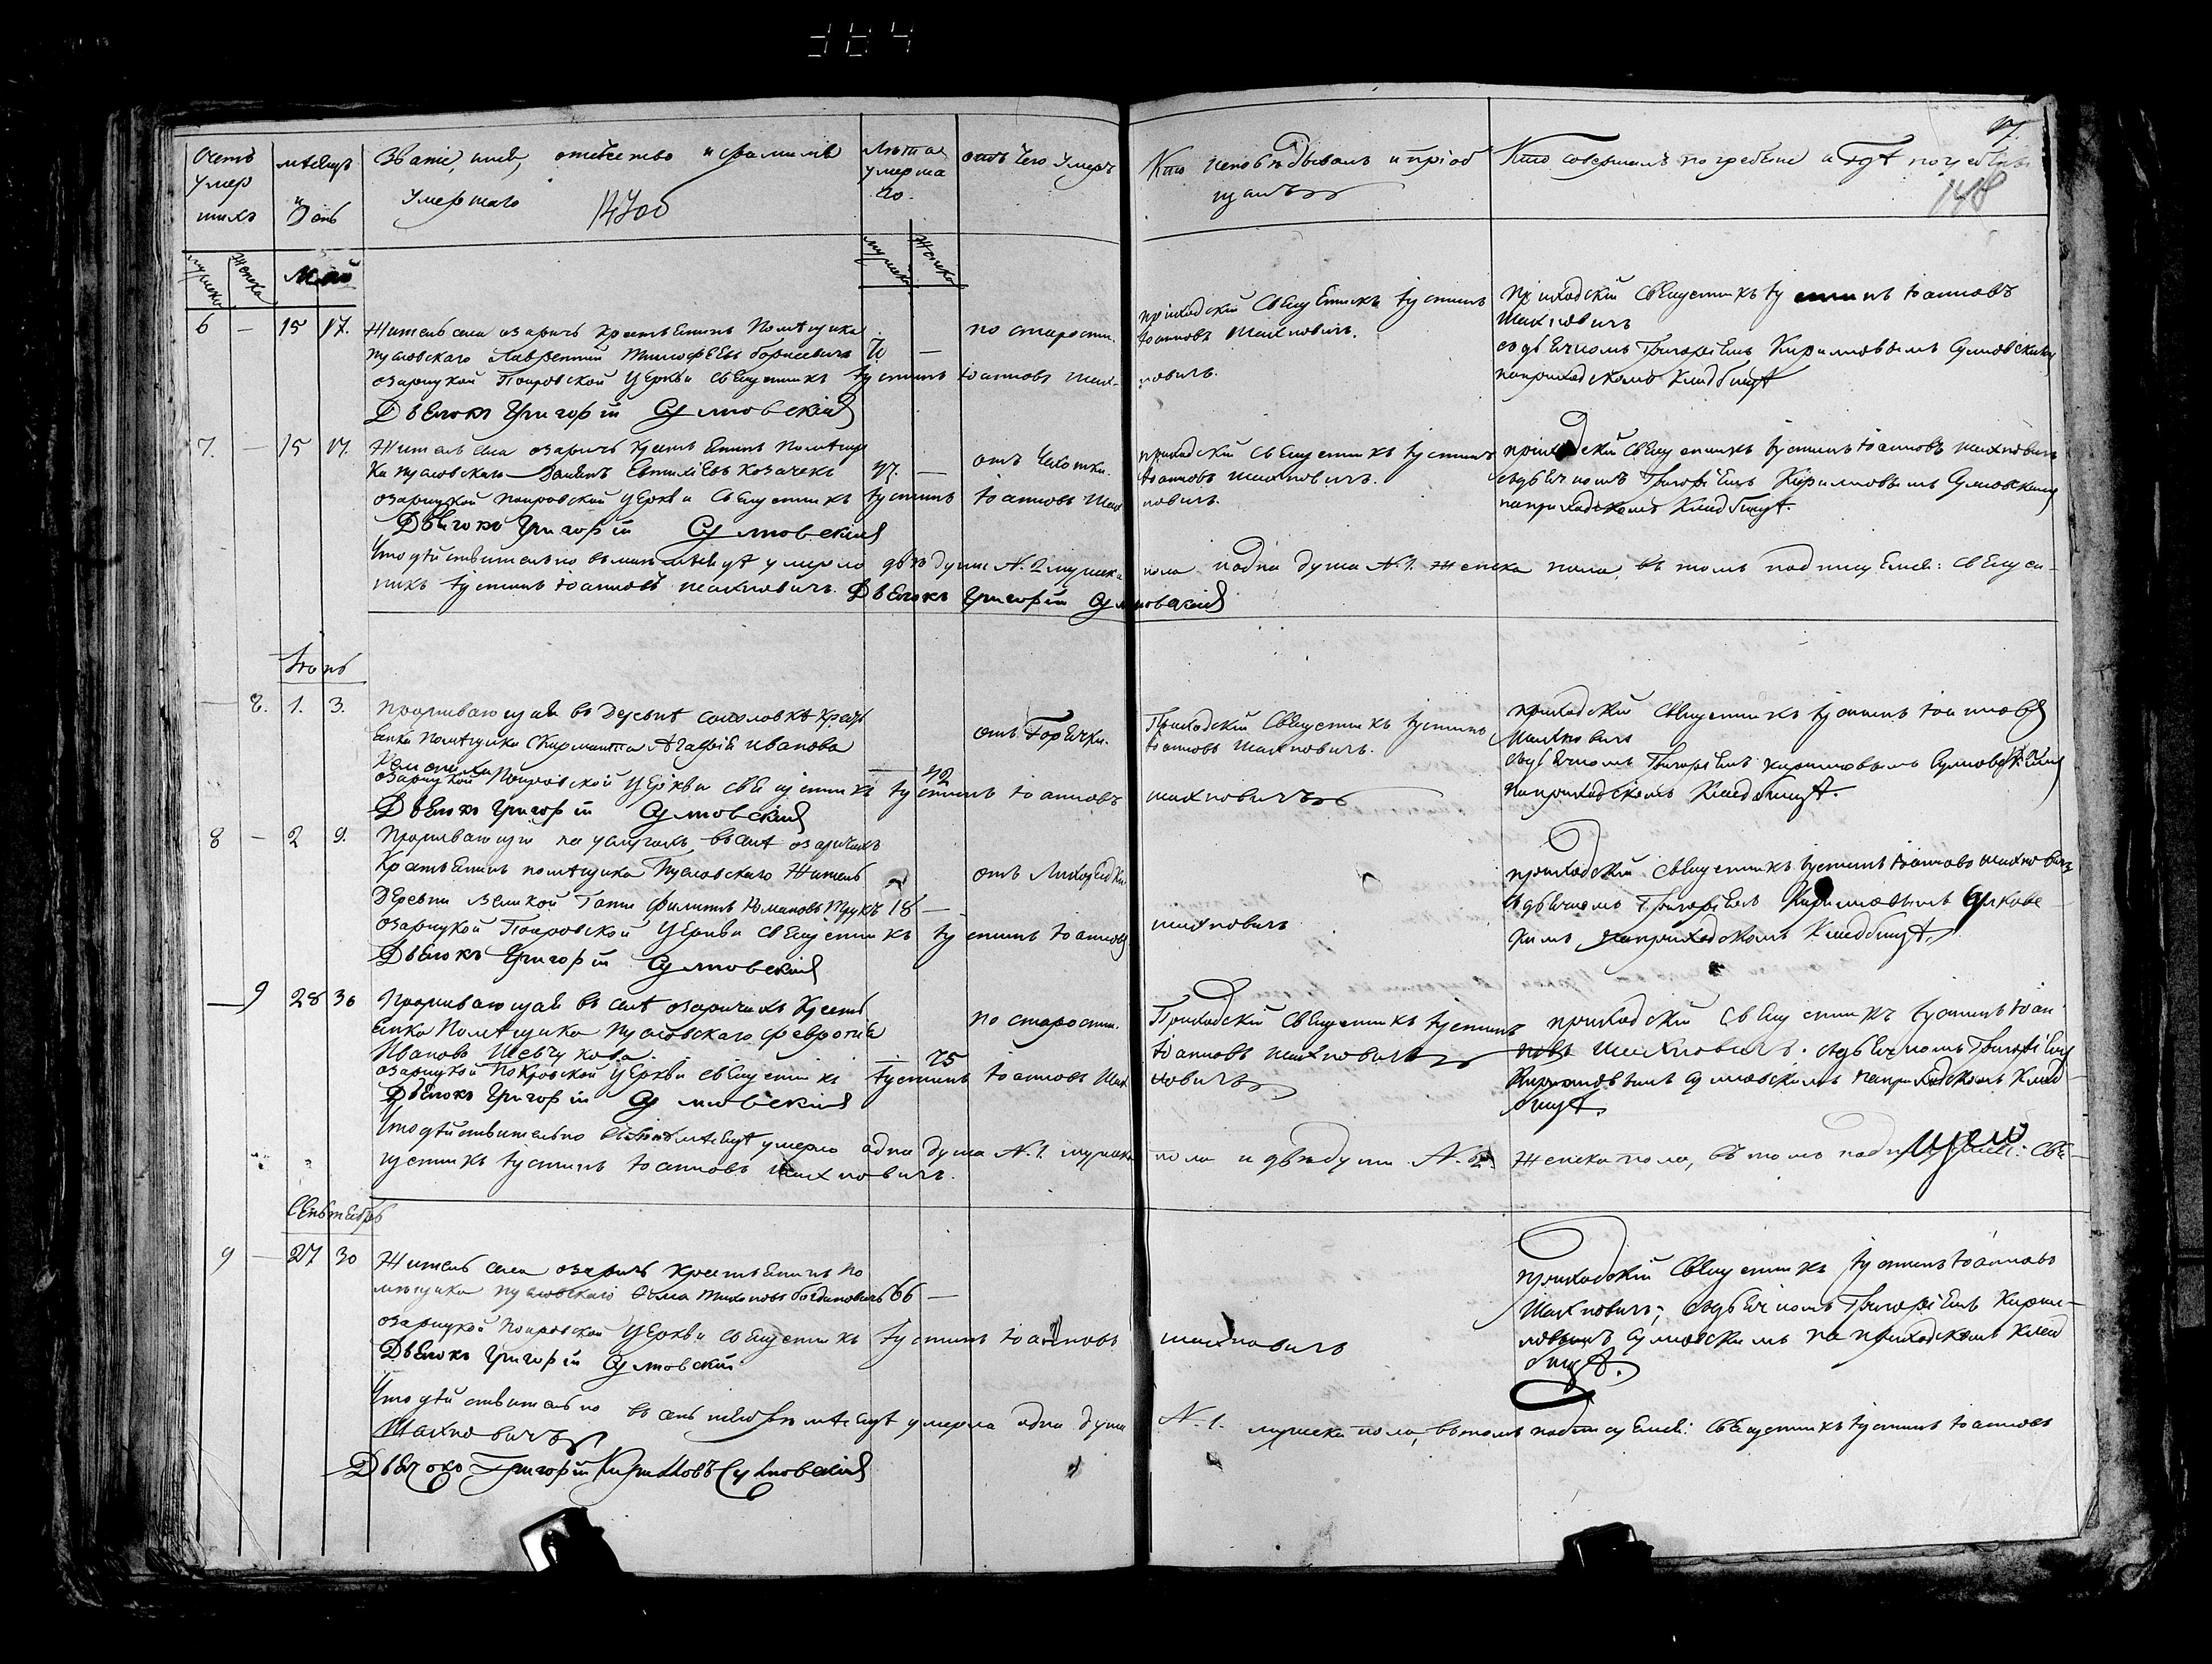 Счетъ умер шихъ
мѣсяцъ и день
Званіе, имя, отечество и фамилія
умершаго
Лѣта умерша го.
отъ чего умеръ
Кто исповѣдывалъ и пріоб
щалъ
Кто совершалъ погребеніе и гдѣ погребенъ
148
мужеска
женска
Май
мужеска
женска
6 — 15 17. Житель села озаричъ крестьянинъ Помѣщика
Пусловскаго Лаврентій Тимофѣевъ Борисевичъ
—
по старости.
озарицкой Покровской Церкви священникъ Iустинъ Iоанновъ Махновичъ.
Дьячокъ Григорій Сулковскій
приходскій Священникъ Iустинъ
Iоанновъ Махновичъ.
приходскій священникъ Iустинъ Iоанновъ
Махновичъ
съдьячкомъ Григоріемъ Кириловымъ
наприходскомъ Кладбищѣ
7. — 15 17. Житель села озаричъ крестьянинъ Помѣщи
ка Пусловскаго Козачекъ
—
отъ чахотки.
озарицкой покровской церкви священникъ Iустинъ Iоанновъ Махновичъ.
Дьячокъ Григорій Сулковскій
приходскій священникъ Iустинъ
Iоанновъ Махновичъ.
приходскій священникъ Iустинъ Iоанновъ Махновичъ
съдьячкомъ Григоріемъ Кириловымъ
наприходскомъ Кладбищѣ.
Что дѣйствительно въ маѣ мѣсяцѣ умерло двѣ души N. 2 мужеска пола одна душа N. 1. женска пола, въ томъ подписуемся: Священ-
никъ Iустинъ Iоанновъ Махновичъ. Дьячокъ Григорій Сулковскій
Iюнь
— 8. 1. 3. Проживающая въ деревнѣ соколовкѣ крест
янка Помѣщика Скирмонта Агафія Иванова
— 42
отъ Горячки.
озарицкой Покровской Церкви священникъ Iустинъ Iоанновъ Махновичъ
Дьячокъ Григорій Сулковскій
Приходскій Священникъ Iустинъ
Iоанновъ Махновичъ.
приходскій священникъ Iустинъ Iоанновъ
Махновичъ
съдьячкомъ Григоріемъ Кириловымъ
наприходскомъ Кладбищѣ.
8 — 2 9. Проживающи на услугахъ въ селѣ озаричахъ
Крестьянинъ помѣщика Пусловскаго Житель
Деревни Великой Гати Филипъ Романовъ
18 —
отъ Лихорадки
озарицкой Покровской Церкви священникъ Iустинъ Iоанновъ Махновичъ
Дьячокъ Григорій Сулковскій
приходскій священникъ Iустинъ Iоанновъ Махновичъ
съдьячкомъ Григоріемъ Кириловымъ Сулковс
кимъ наприходскомъ Кладбищѣ.
— 9 28 30 Проживающая въ селѣ озаричахъ крестя
янка Помѣщика Пусловскаго Февронія
Иванова Шевчукова.
— 75
по старости.
озарицкой Покровской церкви священникъ Iустинъ Iоанновъ Махновичъ
Дьячокъ Григорій Сулковскій
Приходскій священникъ Iустинъ
Iоанновъ Махновичъ
приходскій священникъ Iустинъ Iоан
новъ Махновичъ. съдьячкомъ Григоріемъ
Кириловымъ Сулковскимъ наприходскомъ Клад
бищѣ.
Что дѣйствительно въ мѣсяцѣ умерло одна душа N. 1. мужеска пола и двѣ души N. 2. женска пола, въ томъ подписуемся: Свя-
щенникъ Iустинъ Iоанновъ Махновичъ.
Сентябрь
9 — 27 30 Житель села озаричъ крестьянинъ по
мѣщика Пусловскаго Ѳома Тихоновъ Богдановичъ 66 —
озарицкой покровской Церкви священникъ Iустинъ Iоанновъ Махновичъ
Дьячокъ Григорій Сулковскій
Приходскій Священникъ Iустинъ Iоанновъ
Махновичъ; съдьячкомъ Григоріемъ Кири-
ловымъ Сулковскимъ на приходскомъ клад
бищѣ.
Что дѣйствительно въ сентябрѣ мѣсяцѣ умерла одна душа N. 1. мужеска пола, въ томъ подписуемся: Священникъ Iустинъ Iоанновъ
Махновичъ
Дьячокъ Григорій Кириловъ Сулковскій